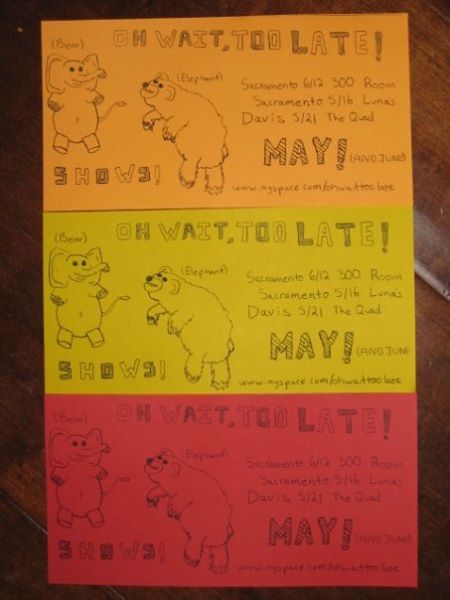 (Bear)
OH WAIT, TOO LATE!
(Elephant)
Sacramento 6/12 300 Room
Sacramento 5/16 Luna's
Davis 5/21 The Quad
MAY! (AND JUNE)
SHOWS!
www.myspace.com/ohwaittoolate
(Bear)
OH WAIT, TOO LATE!
(Elephant)
Sacramento 6/12 300 Room
Sacramento 5/16 Luna's
Davis 5/21 The Quad
MAY! (AND JUNE
SHOWS!
www.myspace.com/ohwaittoolate
(Bear)
OH WAIT, TOO LATE!
(Elephant)
Sacramento 6/12 300 Room
Sacramento 5/16 Luna's
Davis 5/21 The Quad
MAY! (AND JUNE)
SHOWS!
www.myspace.com/ohwaittoolate